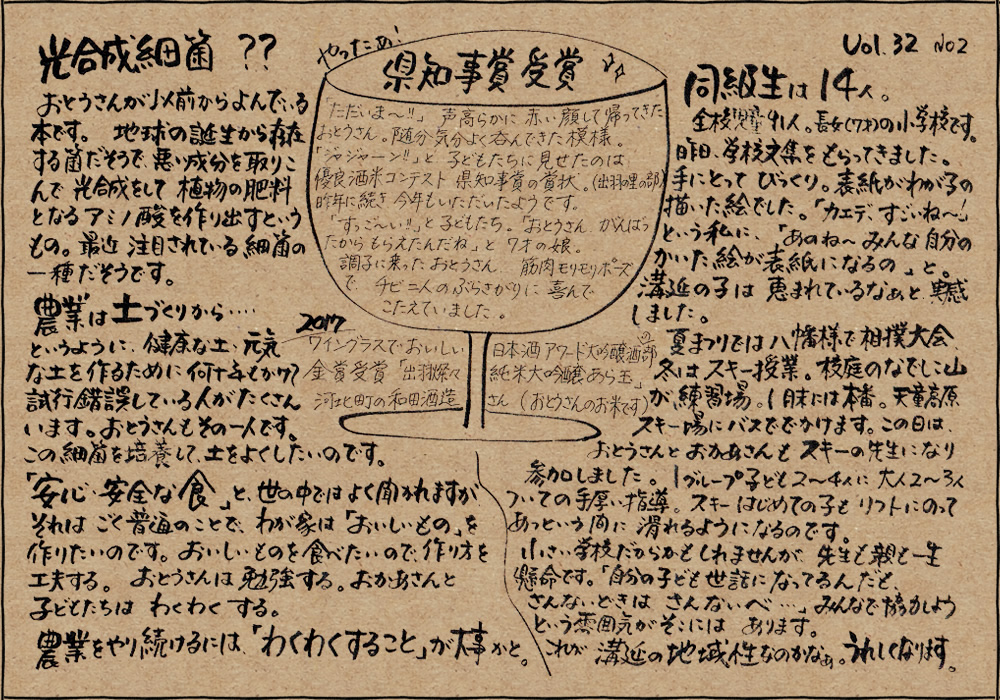 光合成細菌 ??
おとうさんが以前からよんでいる
本です。 地球の誕生から存在
する菌だそうで、悪い成分を取りこ
んで 光合成をして 植物の肥料
となる アミノ酸を作り出すという
もの。最近 注目されている 細菌の
一種 だそうです。
農業は土づくりから‥‥
というように、健康な土・元気
な土を作るために 何十年もかけて
試行錯誤している人がたくさん
います。おとうさんもその一人です。
この細菌を培養して、土をよくしたいのです。
「安心・安全な食」と、世の中ではよく聞かれますが
それは ごく普通のことで、わが家は「おいしいもの」を
作りたいのです。おいしいものを食べたいので、作り方を
工夫する。 おとうさんは 勉強する。おかあさんと
子どもたちは わくわくする。
農業をやり続けるには、「わくわくすること」が大事かと。
やったぁ!
県知事賞 受賞
「ただいま〜!!」 声高らかに 赤い顔して帰ってきた
おとうさん。随分気分よく呑んできた模様。
「ジャジャーン!!」と 子どもたちに見せたのは
優良酒米コンテスト 県知事賞の賞状。(出羽の里の部)
昨年に続き 今年もいただいたようです。
「すっご〜い!!」と子どもたち。「おとうさん がんばっ
たからもらえたんだね」と 7才の娘。
調子に乗ったおとうさん 筋肉モリモリポーズ
で、チビ二人のぶらさがりに 喜んで
こたえていました。
2017
ワイングラスでおいしい日本酒アワード大吟醸酒部
金賞受賞「出羽燦々 純米大吟醸 あら玉」
河北町の和田酒造さん (おとうさんのお米です)
Vol. 32 No2
同級生は 14人。
全校児童 91人。長女(7才)の小学校です。
昨日、学校文集を もらってきました。
手にとって びっくり。表紙がわが子の
描いた絵でした。「カエデ、すごいね〜!」
という私に、「あのね〜 みんな 自分の
かいた絵が表紙になるの」と。
溝延の子は 恵まれているなぁと、実感
しました。
夏まつりでは 八幡様で相撲大会、
冬は スキー授業。校庭のなでしこ山
が練習場。1月末には本番。天童高原
スキー場に バスででかけます。この日は、
おとうさんと おかあさんも スキーの先生になり
参加しました。1グループ子ども2〜4人に 大人2〜3人
ついての手厚い指導。スキーはじめての子も リフトにのって
あっという間に 滑れるようになるのです。
小さい学校だからかもしれませんが、先生も親も一生
懸命です。「自分の子ども世話になってるんだど、
さんないときは さんないべ…」みんなで協力しよう
という雰囲気がそこには あります。
これが 溝延の地域性なのかなぁ。うれしくなります。